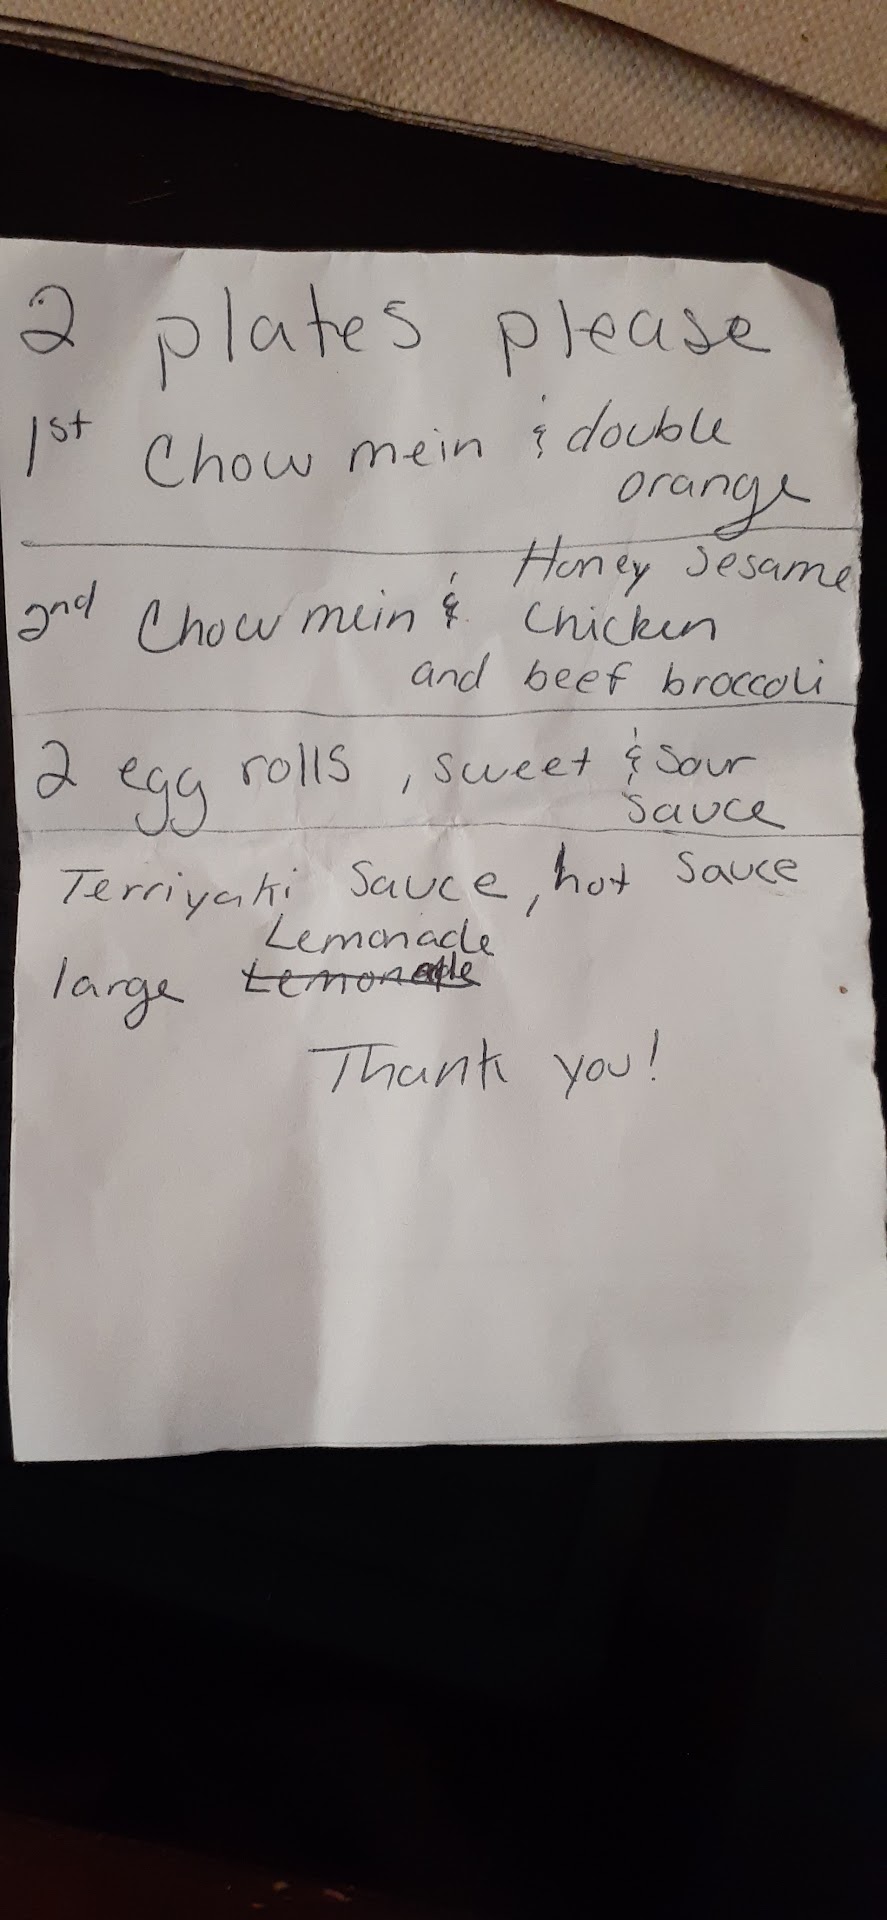 2 plates please
1st Chow mein & double
orange
Honey Sesame
2nd Chow mein & Chicken
and beef broccoli
2 egg rolls, sweet & sour
sauce
Terriyaki Sauce, hot Sauce
Lemonade
large Lemonade
Thank you!